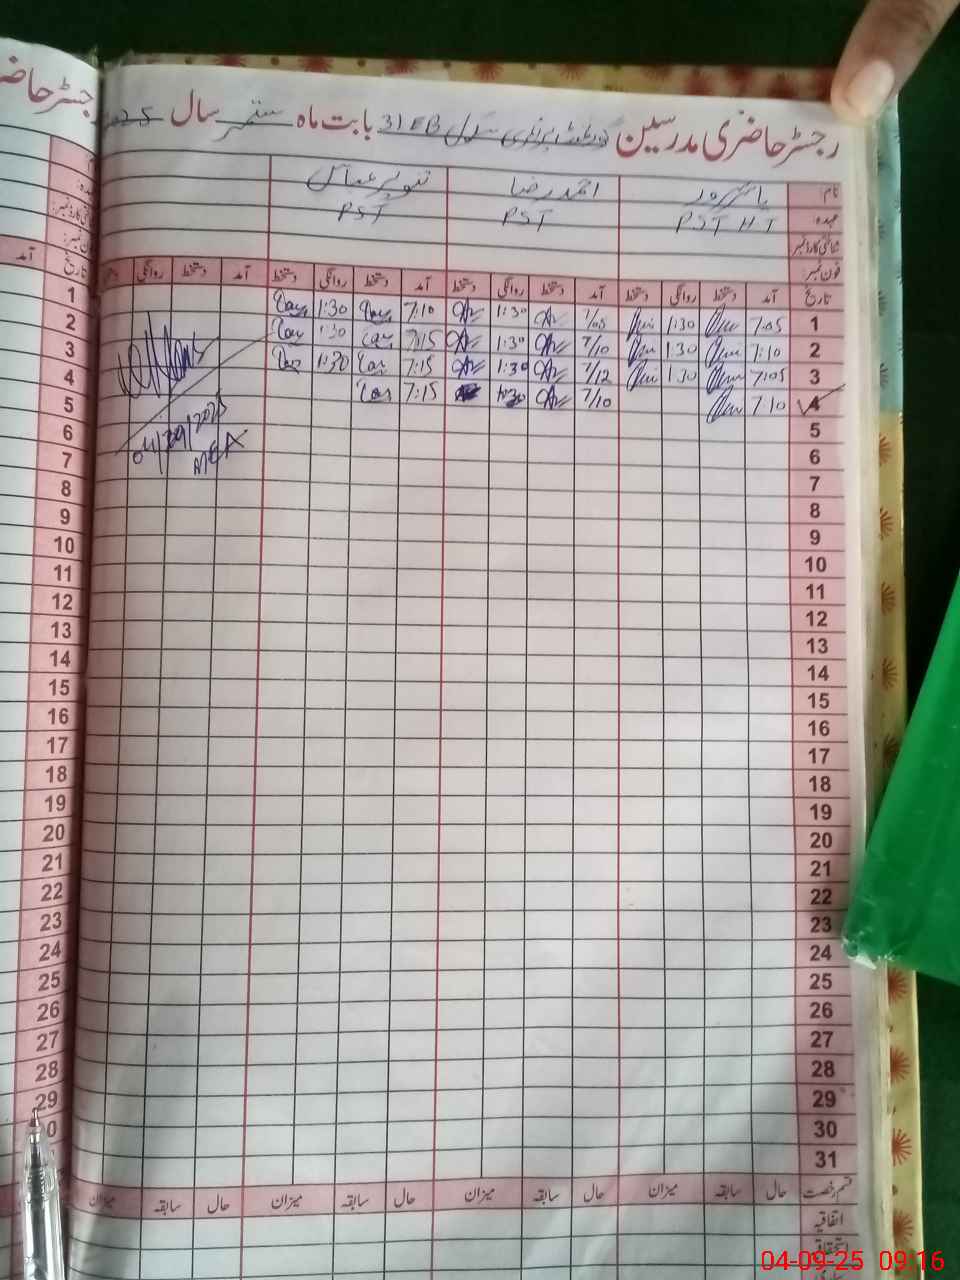 رجسٹر حاضری مدرسین گورنمنٹ پرائمری سکول 31EB بابت ماہ ستمبر سال 2025
نام: احمد رضا تنویر عباس
عہدہ: PST H.T PST PST
شناختی کارڈ نمبر:
فون نمبر:
تاریخ آمد دستخط روانگی دستخط آمد دستخط روانگی دستخط آمد دستخط روانگی دستخط آمد دستخط روانگی دستخط
1 7:05 1:30 7/05 1:30 7:10 1:30
2 7:10 1:30 7/10 1:30 7:15 1:30
3 7:05 1:30 7/12 1:30 7:15 1:30
4 7:10 7/10 7:15
5
6
7
8
9
10
11
12
13
14
15
16
17
18
19
20
21
22
23
24
25
26
27
28
29
30
31
04/09/2025
MEA
قسم رخصت حال سابقہ میزان حال سابقہ میزان حال سابقہ میزان حال سابقہ میزان
اتفاقیہ
استحقاقیہ
رجسٹر حاضر
تاریخ آمد
1
2
3
4
5
6
7
8
9
10
11
12
13
14
15
16
17
18
19
20
21
22
23
24
25
26
27
28
29
04-09-25 09:16